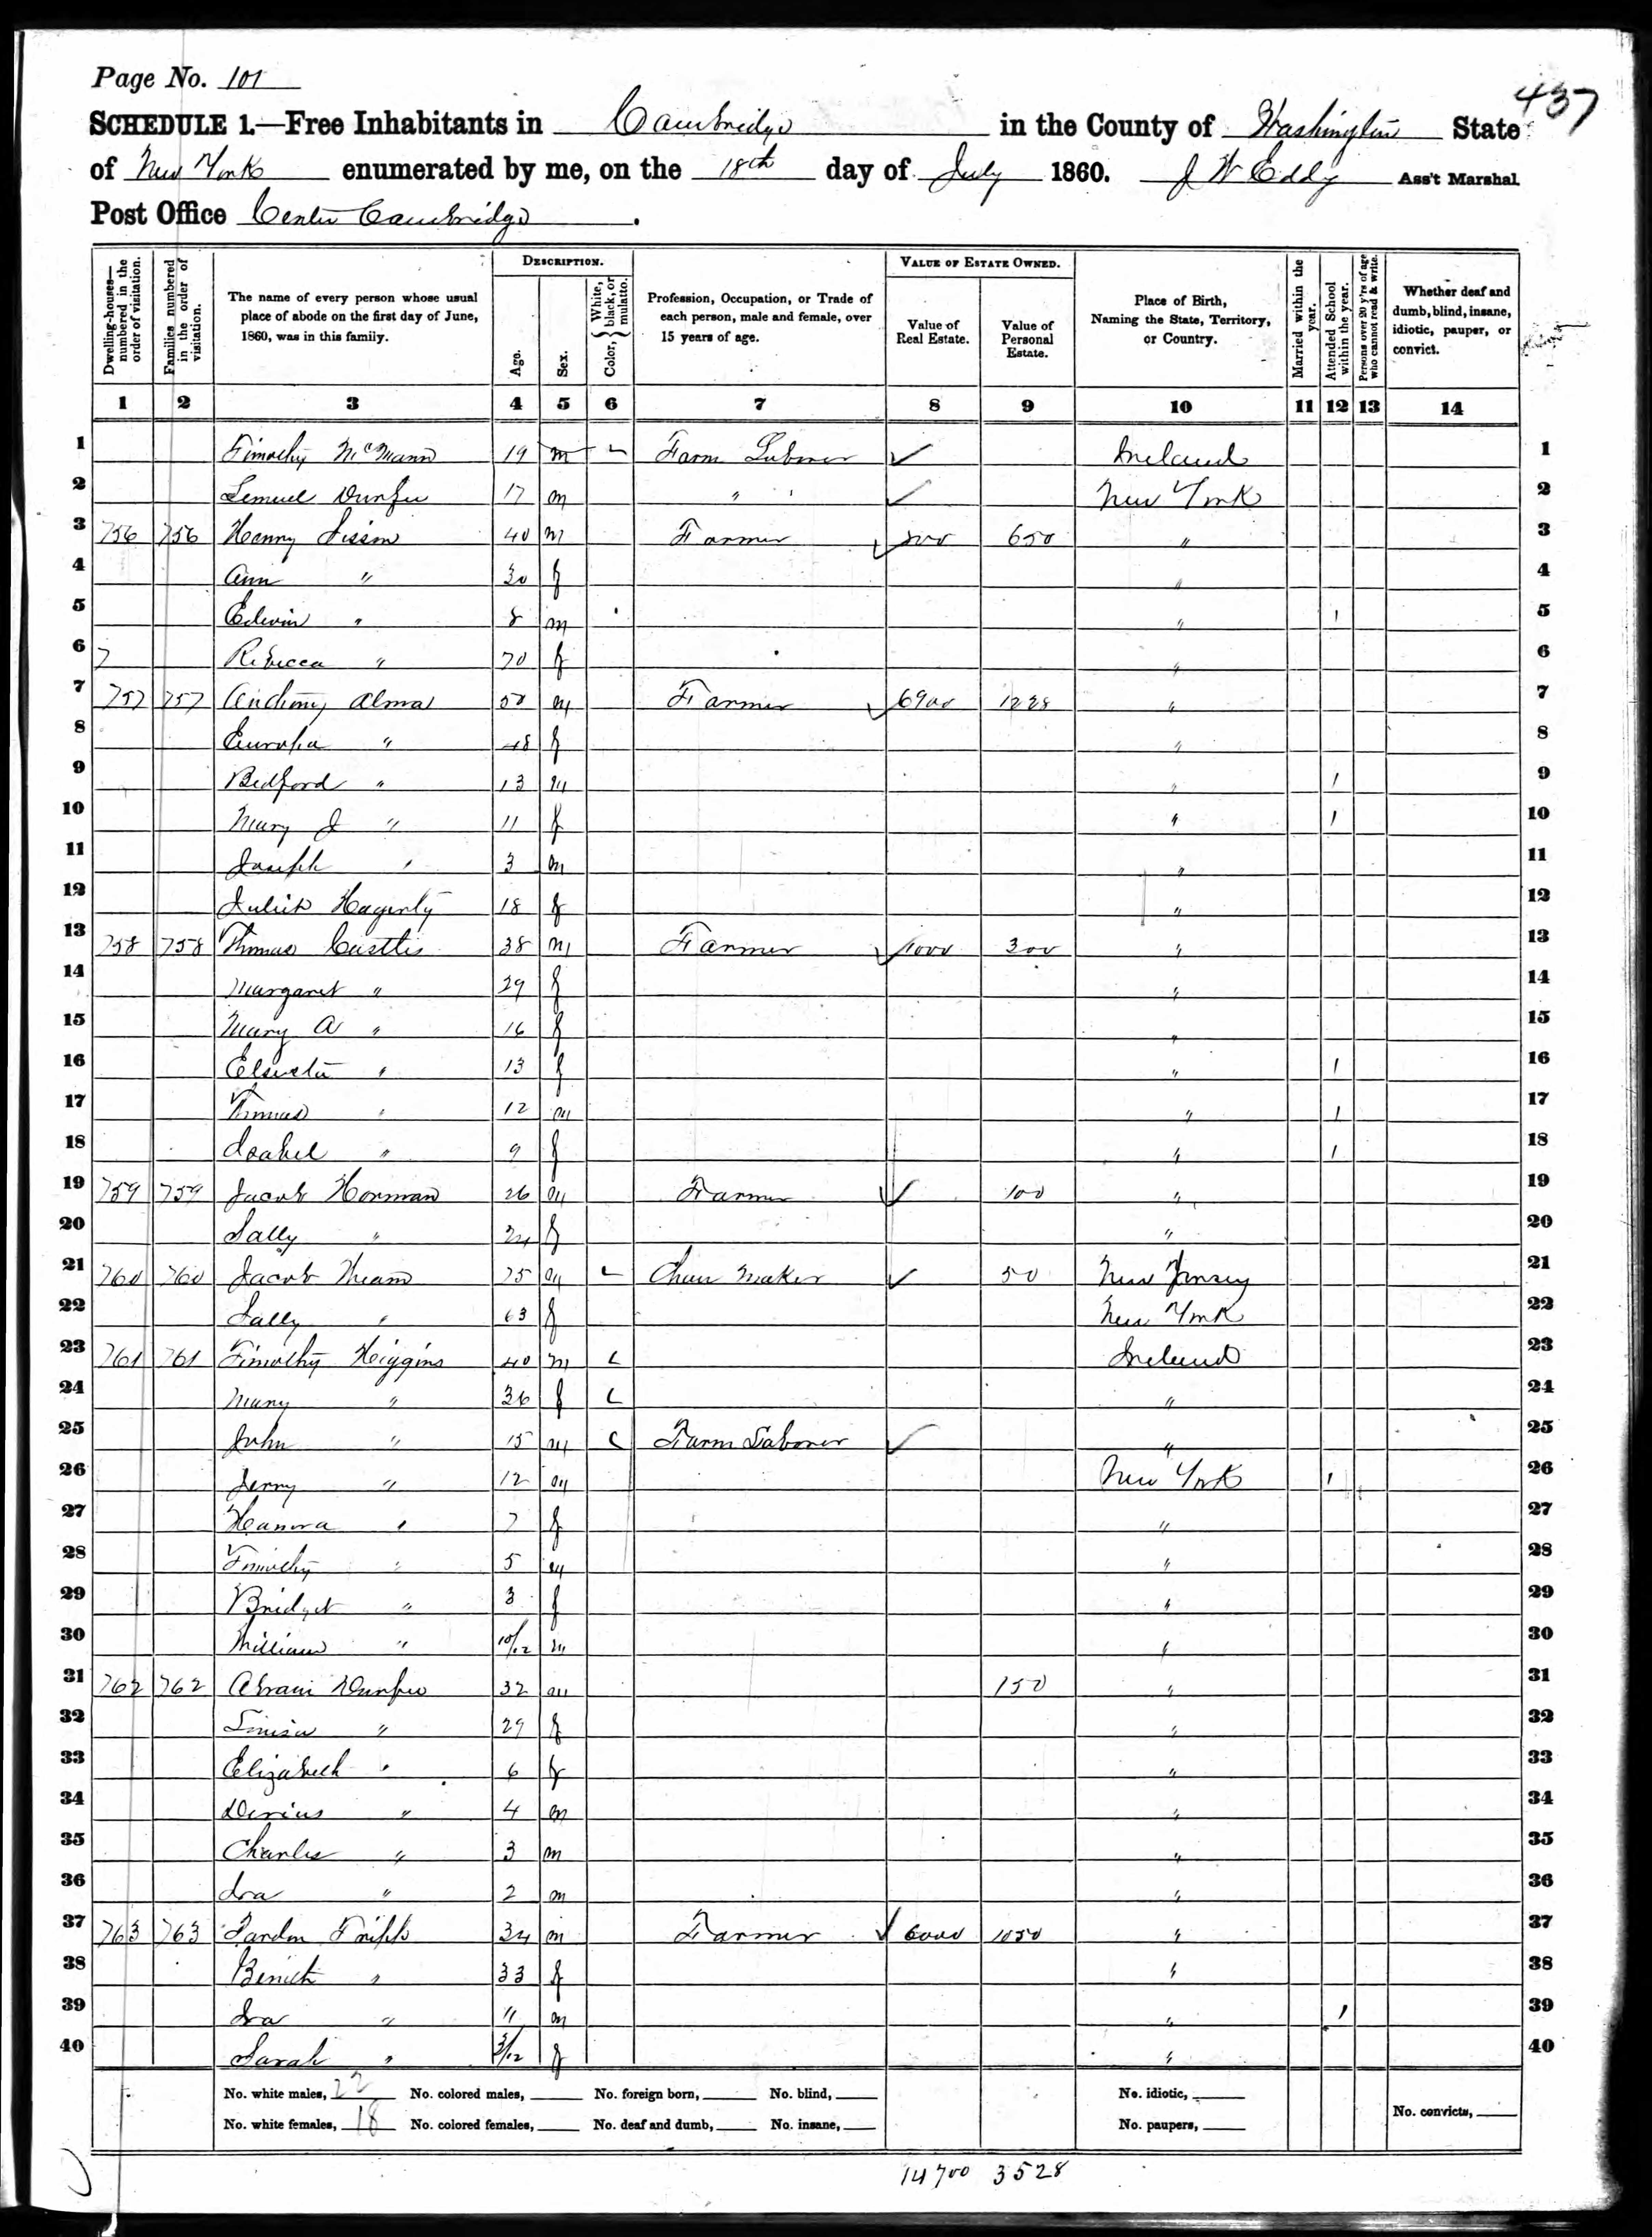 Page No. 101
437
SCHEDULE 1.—Free Inhabitants in Cambridge in the County of Washington State
of New York enumerated by me, on the 18th day of July 1860. J W Eddy Ass't Marshal.
Post Office Center Cambridge.
Dwelling-houses—numbered in the order of visitation.
Families numbered in the order of visitation.
The name of every person whose usual place of abode on the first day of June, 1860, was in this family.
DESCRIPTION.
Age.
Sex.
Color, { White, black, or mulatto.
Profession, Occupation, or Trade of each person, male and female, over 15 years of age.
VALUE OF ESTATE OWNED.
Value of Real Estate.
Value of Personal Estate.
Place of Birth, Naming the State, Territory, or Country.
Married within the year.
Attended School within the year.
Persons over 20 y'rs of age who cannot read & write.
Whether deaf and dumb, blind, insane, idiotic, pauper, or convict.
1 2 3 4 5 6 7 8 9 10 11 12 13 14
1 Timothy McMann 19 m Farm Laborer ✓ Ireland 1
2 Lemuel Durfee 17 m " " ✓ New York 2
3 756 756 Henry Sisson 40 m Farmer ✓ 800 650 " 3
4 Ann " 30 f " 4
5 Edwin " 8 m " 1 5
6 7 Rebecca " 70 f " 6
7 757 757 Anthony Alma 50 m Farmer ✓ 6900 1228 " 7
8 Europa " 48 f " 8
9 Bedford " 13 m " 1 9
10 Mary J " 11 f " 1 10
11 Joseph " 3 m " 11
12 Hagerty 18 f " 12
13 758 758 Thomas Castles 38 m Farmer ✓ 1000 300 " 13
14 Margaret " 29 f " 14
15 Mary A " 16 f " 15
16 " 13 f " 1 16
17 Thomas " 12 m " 1 17
18 Isabel " 9 f " 1 18
19 759 759 Jacob Horman 26 m Farmer ✓ 100 " 19
20 Sally " 24 f " 20
21 760 760 Jacob 75 m Chair Maker ✓ 50 New Jersey 21
22 Sally " 63 f New York 22
23 761 761 Timothy Higgins 40 m Ireland 23
24 Mary " 36 f " 24
25 John " 15 m Farm Laborer ✓ " 25
26 Jerry " 12 m New York 1 26
27 Hanora " 7 f " 27
28 Timothy " 5 m " 28
29 Bridget " 3 f " 29
30 William " 10/12 m " 30
31 762 762 Abram Durfee 32 m 150 " 31
32 Louisa " 29 f " 32
33 Elizabeth " 6 f " 33
34 Darius " 4 m " 34
35 Charles " 3 m " 35
36 Ira " 2 m " 36
37 763 763 Tripp 34 m Farmer ✓ 6000 1050 " 37
38 " 33 f " 38
39 Ira " 11 m " 1 39
40 Sarah " 3/12 f " 40
No. white males, 22 No. colored males, No. foreign born, No. blind, No. idiotic,
No. white females, 18 No. colored females, No. deaf and dumb, No. insane, No. paupers, No. convicts,
14700 3528